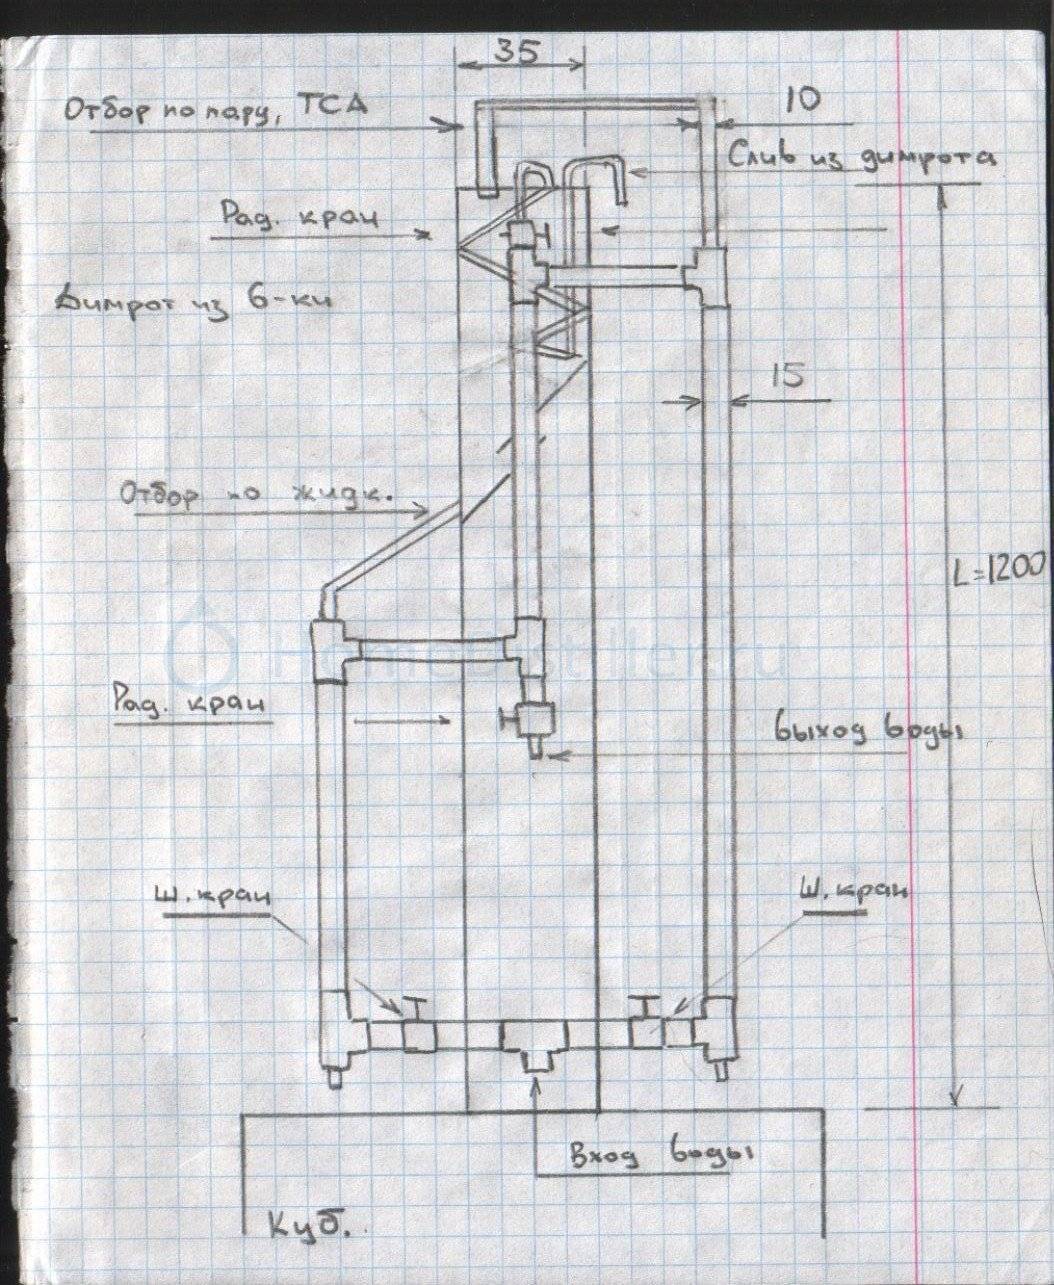 35
Отбор по пару, ТСА
10
Слив из димрота
Рад. кран
Димрот из 6-ки
15
Отбор по жидк.
L=1200
HomeDistiller.ru
Рад. кран
Выход воды
Ш. кран
Ш. кран
Вход воды
Куб.